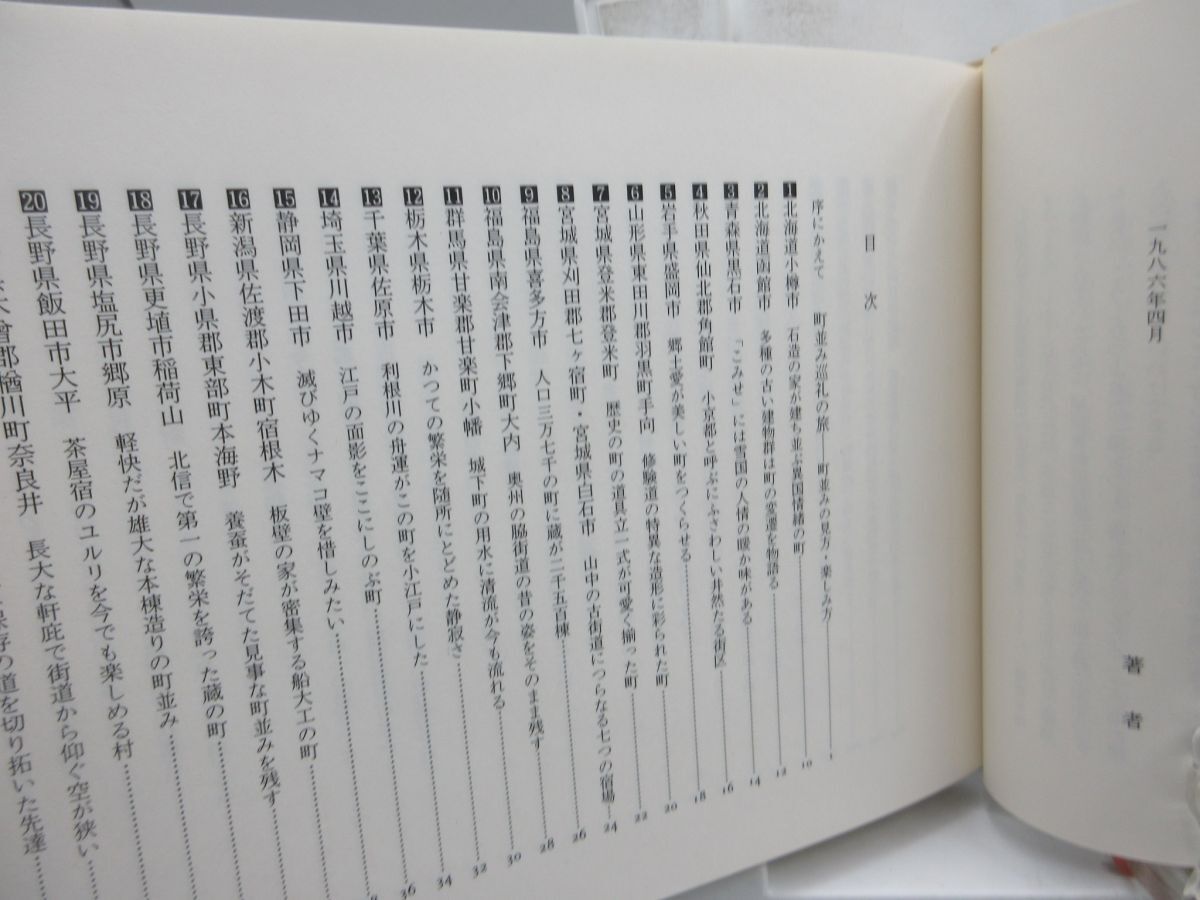 一九八六年四月
著者
目次
序にかえて 町並み巡礼の旅――町並みの見方・楽しみ方……1
1 北海道小樽市 石造の家が建ち並ぶ異国情緒の町……10
2 北海道函館市 多種の古い建物群は町の変遷を物語る……12
3 青森県黒石市 「こみせ」には雪国の人情の暖か味がある……14
4 秋田県仙北郡角館町 小京都と呼ぶにふさわしい井然たる街区……16
5 岩手県盛岡市 郷土愛が美しい町をつくらせる……18
6 山形県東田川郡羽黒町手向 修験道の特異な造形に彩られた町……20
7 宮城県登米郡登米町 歴史の町の道具立一式が可愛く揃った町……22
8 宮城県刈田郡七ヶ宿町・宮城県白石市 山中の古街道につらなる七つの宿場……24
9 福島県喜多方市 人口三万七千の町に蔵が二千五百棟……26
10 福島県南会津郡下郷町大内 奥州の脇街道の昔の姿をそのまま残す……28
11 群馬県甘楽郡甘楽町小幡 城下町の用水に清流が今も流れる……30
12 栃木県栃木市 かつての繁栄を随所にとどめた静寂さ……32
13 千葉県佐原市 利根川の舟運がこの町を小江戸にした……34
14 埼玉県川越市 江戸の面影をここにしのぶ町……36
15 静岡県下田市 滅びゆくナマコ壁を惜しみたい……
16 新潟県佐渡郡小木町宿根木 板壁の家が密集する船大工の町……
17 長野県小県郡東部町本海野 養蚕がそだてた見事な町並みを残す
18 長野県更埴市稲荷山 北信で第一の繁栄を誇った蔵の町……
19 長野県塩尻市郷原 軽快だが雄大な本棟造りの町並み……
20 長野県飯田市大平 茶屋宿のユルリを今でも楽しめる村……
木曾郡楢川町奈良井 長大な軒庇で街道から仰ぐ空が狭い……
保存の道を切り拓いた先達……